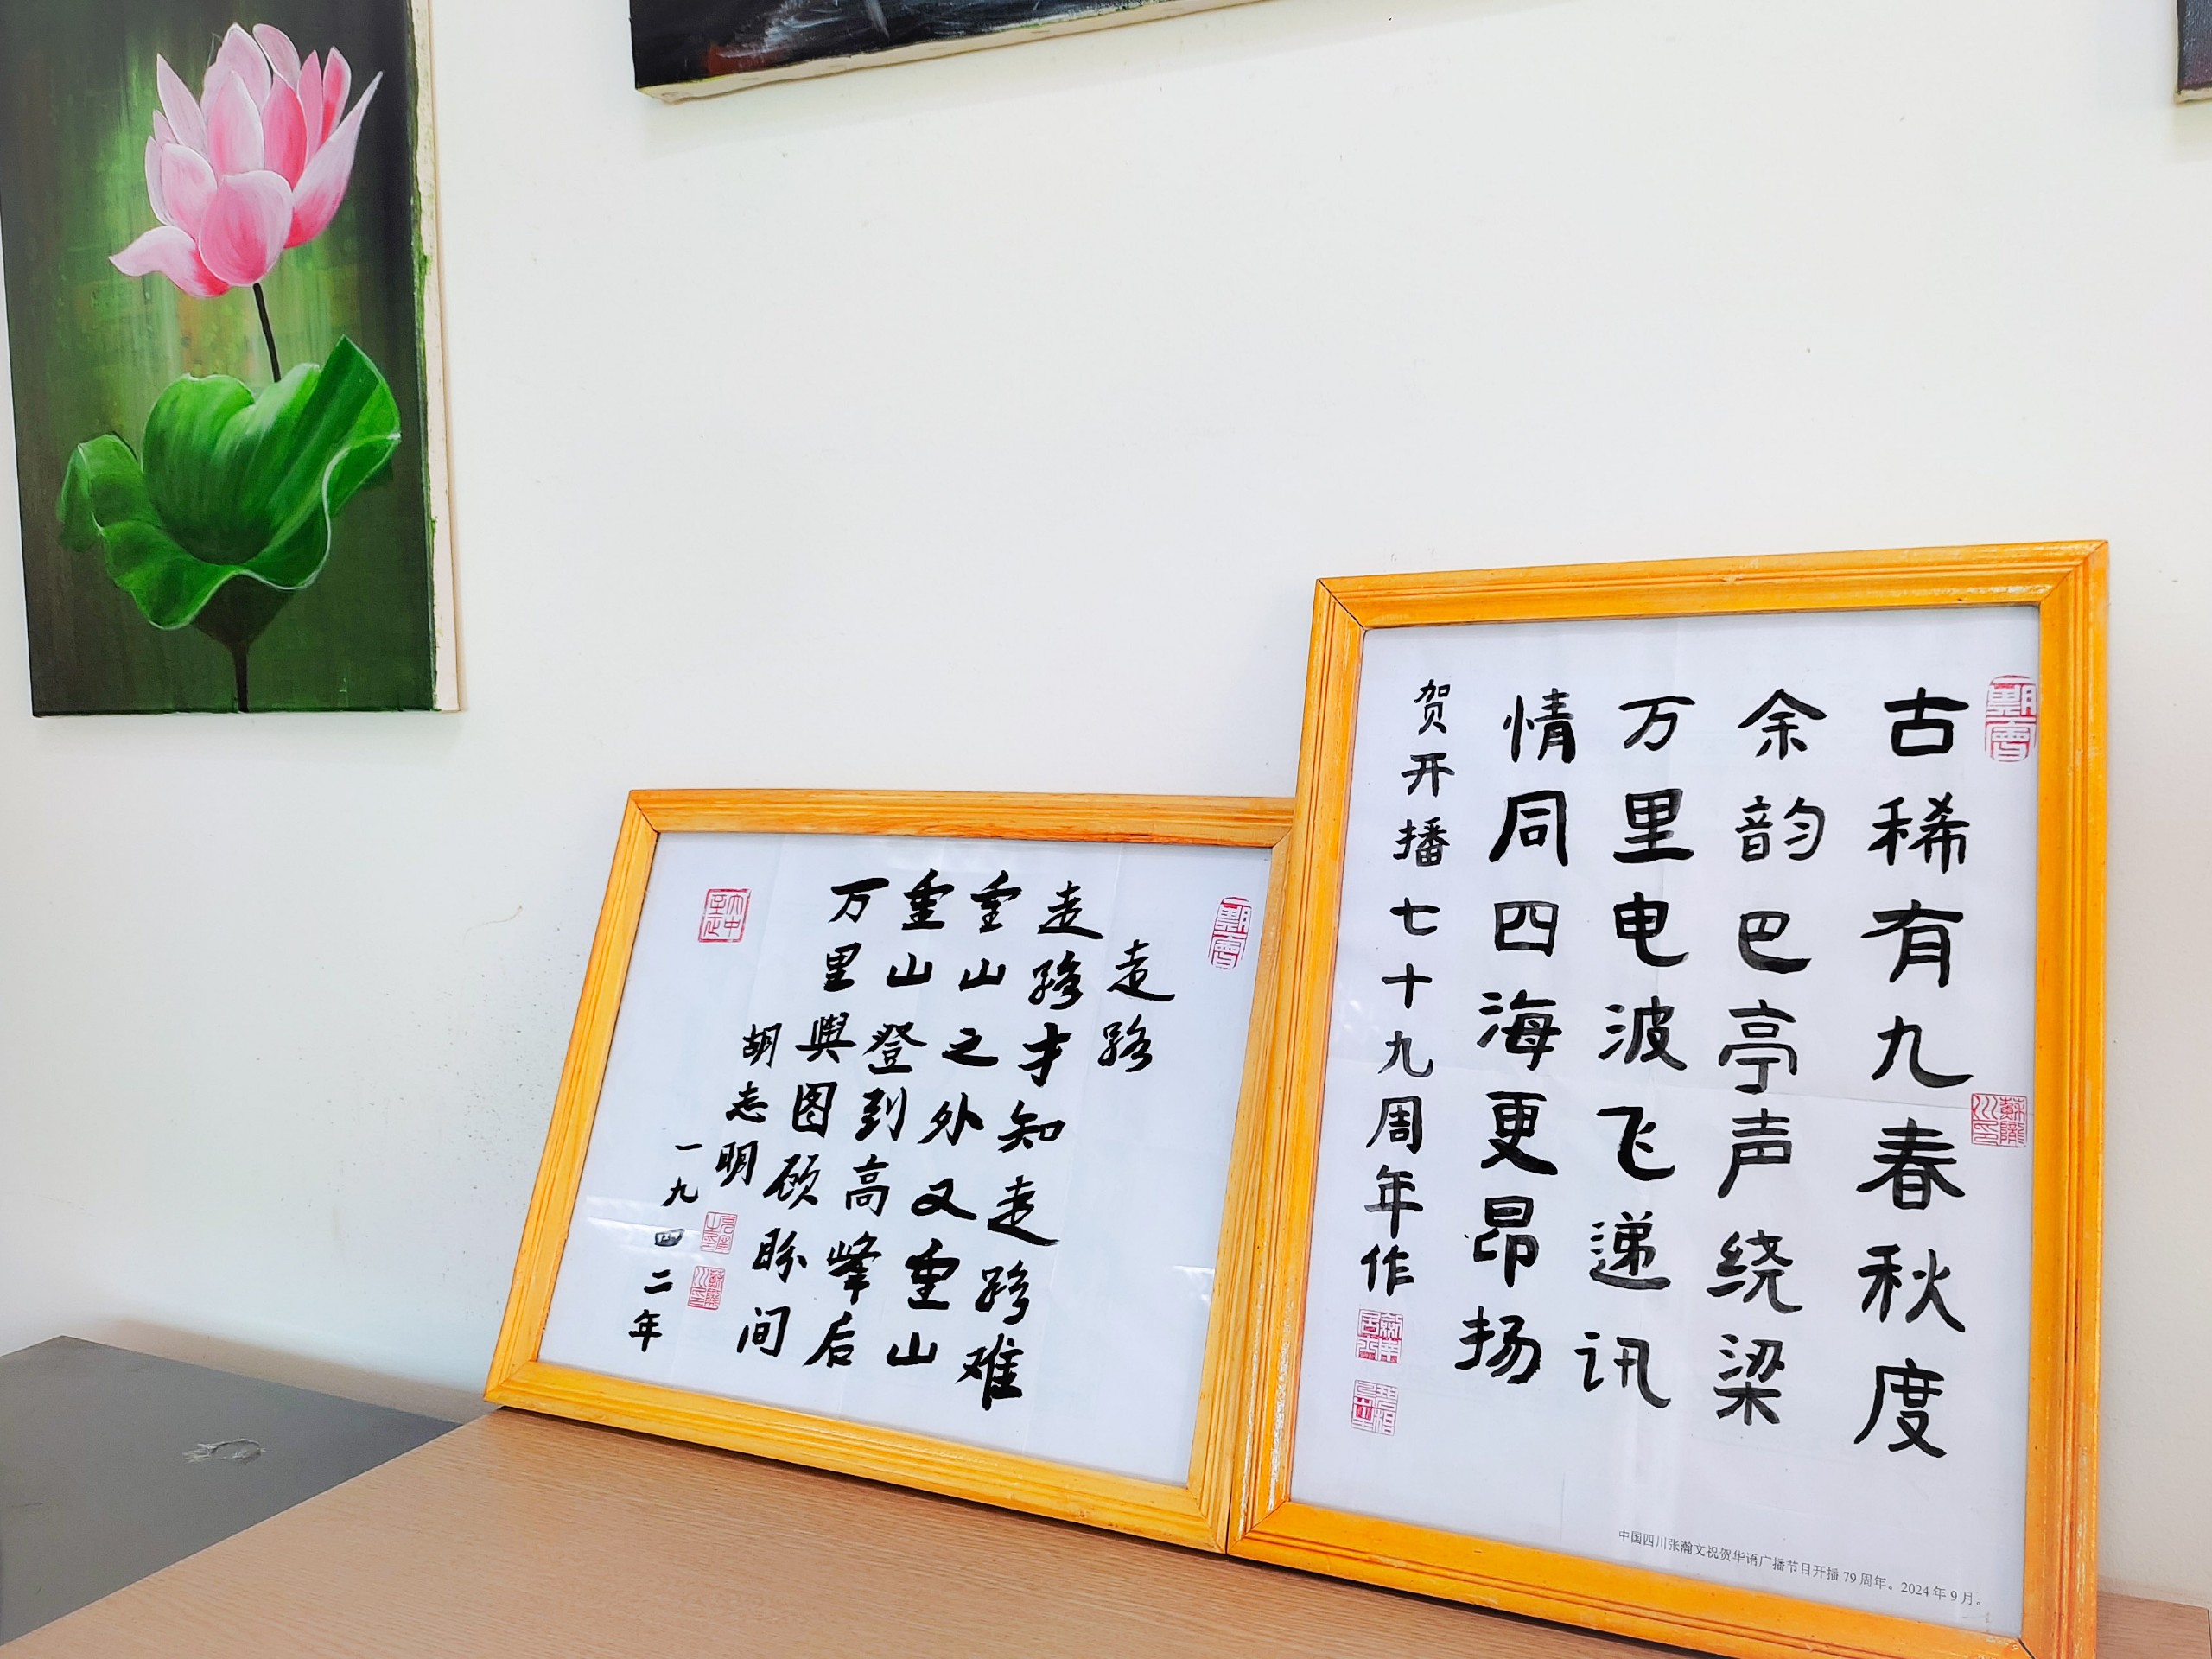 走路
走路才知走路难
重山之外又重山
重山登到高峰后
万里舆图顾盼间
胡志明
一九四二年
古稀有九春秋度
余韵巴亭声绕梁
万里电波飞递讯
情同四海更昂扬
贺开播七十九周年作
中国四川张瀚文祝贺华语广播节目开播 79 周年。2024 年 9 月。